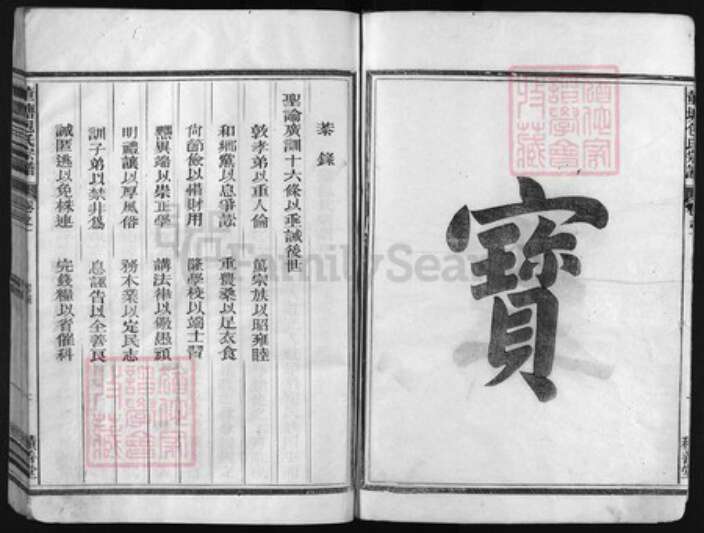 寶
恭錄
聖諭廣訓十六條以垂誡後世
敦孝弟以重人倫 篤宗族以昭雍睦
和鄉黨以息爭訟 重農桑以足衣食
尙節儉以惜財用 隆學校以端士習
黜異端以崇正學 講法律以儆愚頑
明禮讓以厚風俗 務本業以定民志
訓子弟以禁非爲 息誣告以全善良
誡匿逃以免株連 完錢糧以省催科
積善堂
猶他家譜學會特藏
FamilySearch